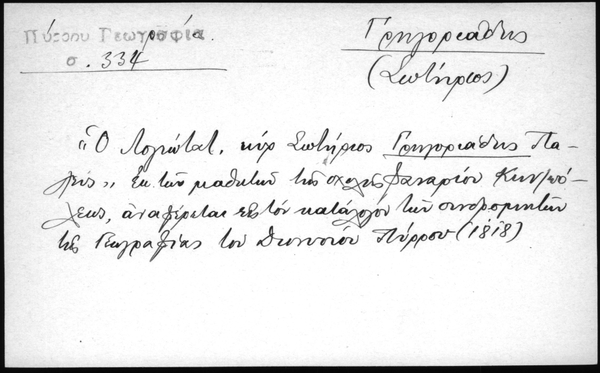 Πύρρου Γεωγραφία.
σ. 334
Γρηγοριάδης
(Σωτήριος)
"Ὁ λογιώτατ. κὺρ Σωτήριος Γρηγοριάδης Πα-
" Ἐκ τῶν μαθητῶν τῆς σχολῆς Φαναρίου Κων/πό-
λεως, ἀναφέρεται εἰς τὸν κατάλογον τῶν συνδρομητῶν
τῆς Γεωγραφίας τοῦ Διονυσίου Πύρρου (1818)